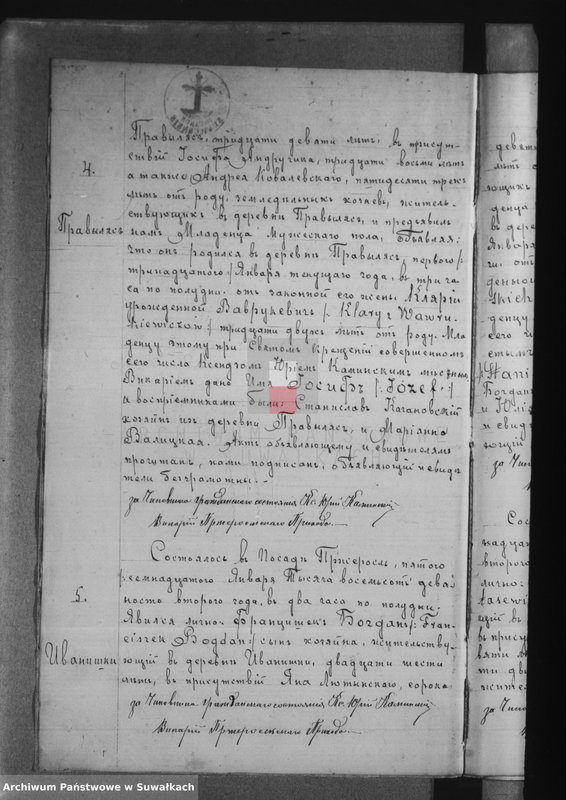 4.
Правылясъ
Правылясъ, тридцати девяти лѣтъ, въ присут-
ствіи Іосифа Андручика, тридцати восьми лѣтъ
а также Андрея Ковалевскаго, пятидесяти трехъ
лѣтъ отъ роду, земледѣльныхъ хозяевъ, житель-
ствующихъ въ деревни Правылясъ, и предъявилъ
намъ Младенца Мужескаго пола, объявляя:
что онъ родился въ деревни Правылясъ, перваго /:
тринадцатаго:/ Января текущаго года, въ три ча-
са по полудни: отъ законной его жены Кляріи
урожденной Ваврукевичъ /: Klary z Wawru-
kiewiczów:/ тридцати двухъ лѣтъ отъ роду. Мла-
денцу этому при Святомъ Крещеніи совершенномъ
сего числа Ксендзомъ Юріемъ Каминскимъ мѣстнымъ
Викаріемъ дано Имя Іосифъ /: Józef :/
и воспріемниками были: Станиславъ Качановскій
хозяинъ изъ деревни Правылясъ, и Маріанна
Валицкая. Актъ объявляющему и свидѣтелямъ
прочитанъ, нами подписанъ, объявляющій и свидѣ-
тели безграмотны.
за Чиновника Гражданскаго состоянія Кс. Юрій Каминскій
Викарій Пржеросльскаго Прихода
5.
Иванишки
Состоялось въ Посадѣ Пржеросль, пятаго
/: семнадцатаго Января Тысяча восемьсотъ девя-
носто втораго года, въ два часа по полудни:
Явился лично: Францишекъ Богданъ /: Fran-
ciszek Bogdan :/ сынъ хозяина, жительству-
ющій въ деревни Иванишки, двадцати шести
лѣтъ, въ присутствіи Яна Лютынскаго, сорока
за Чиновника Гражданскаго состоянія Кс. Юрій Каминскій
Викарій Пржеросльскаго Прихода
Archiwum Państwowe w Suwałkach